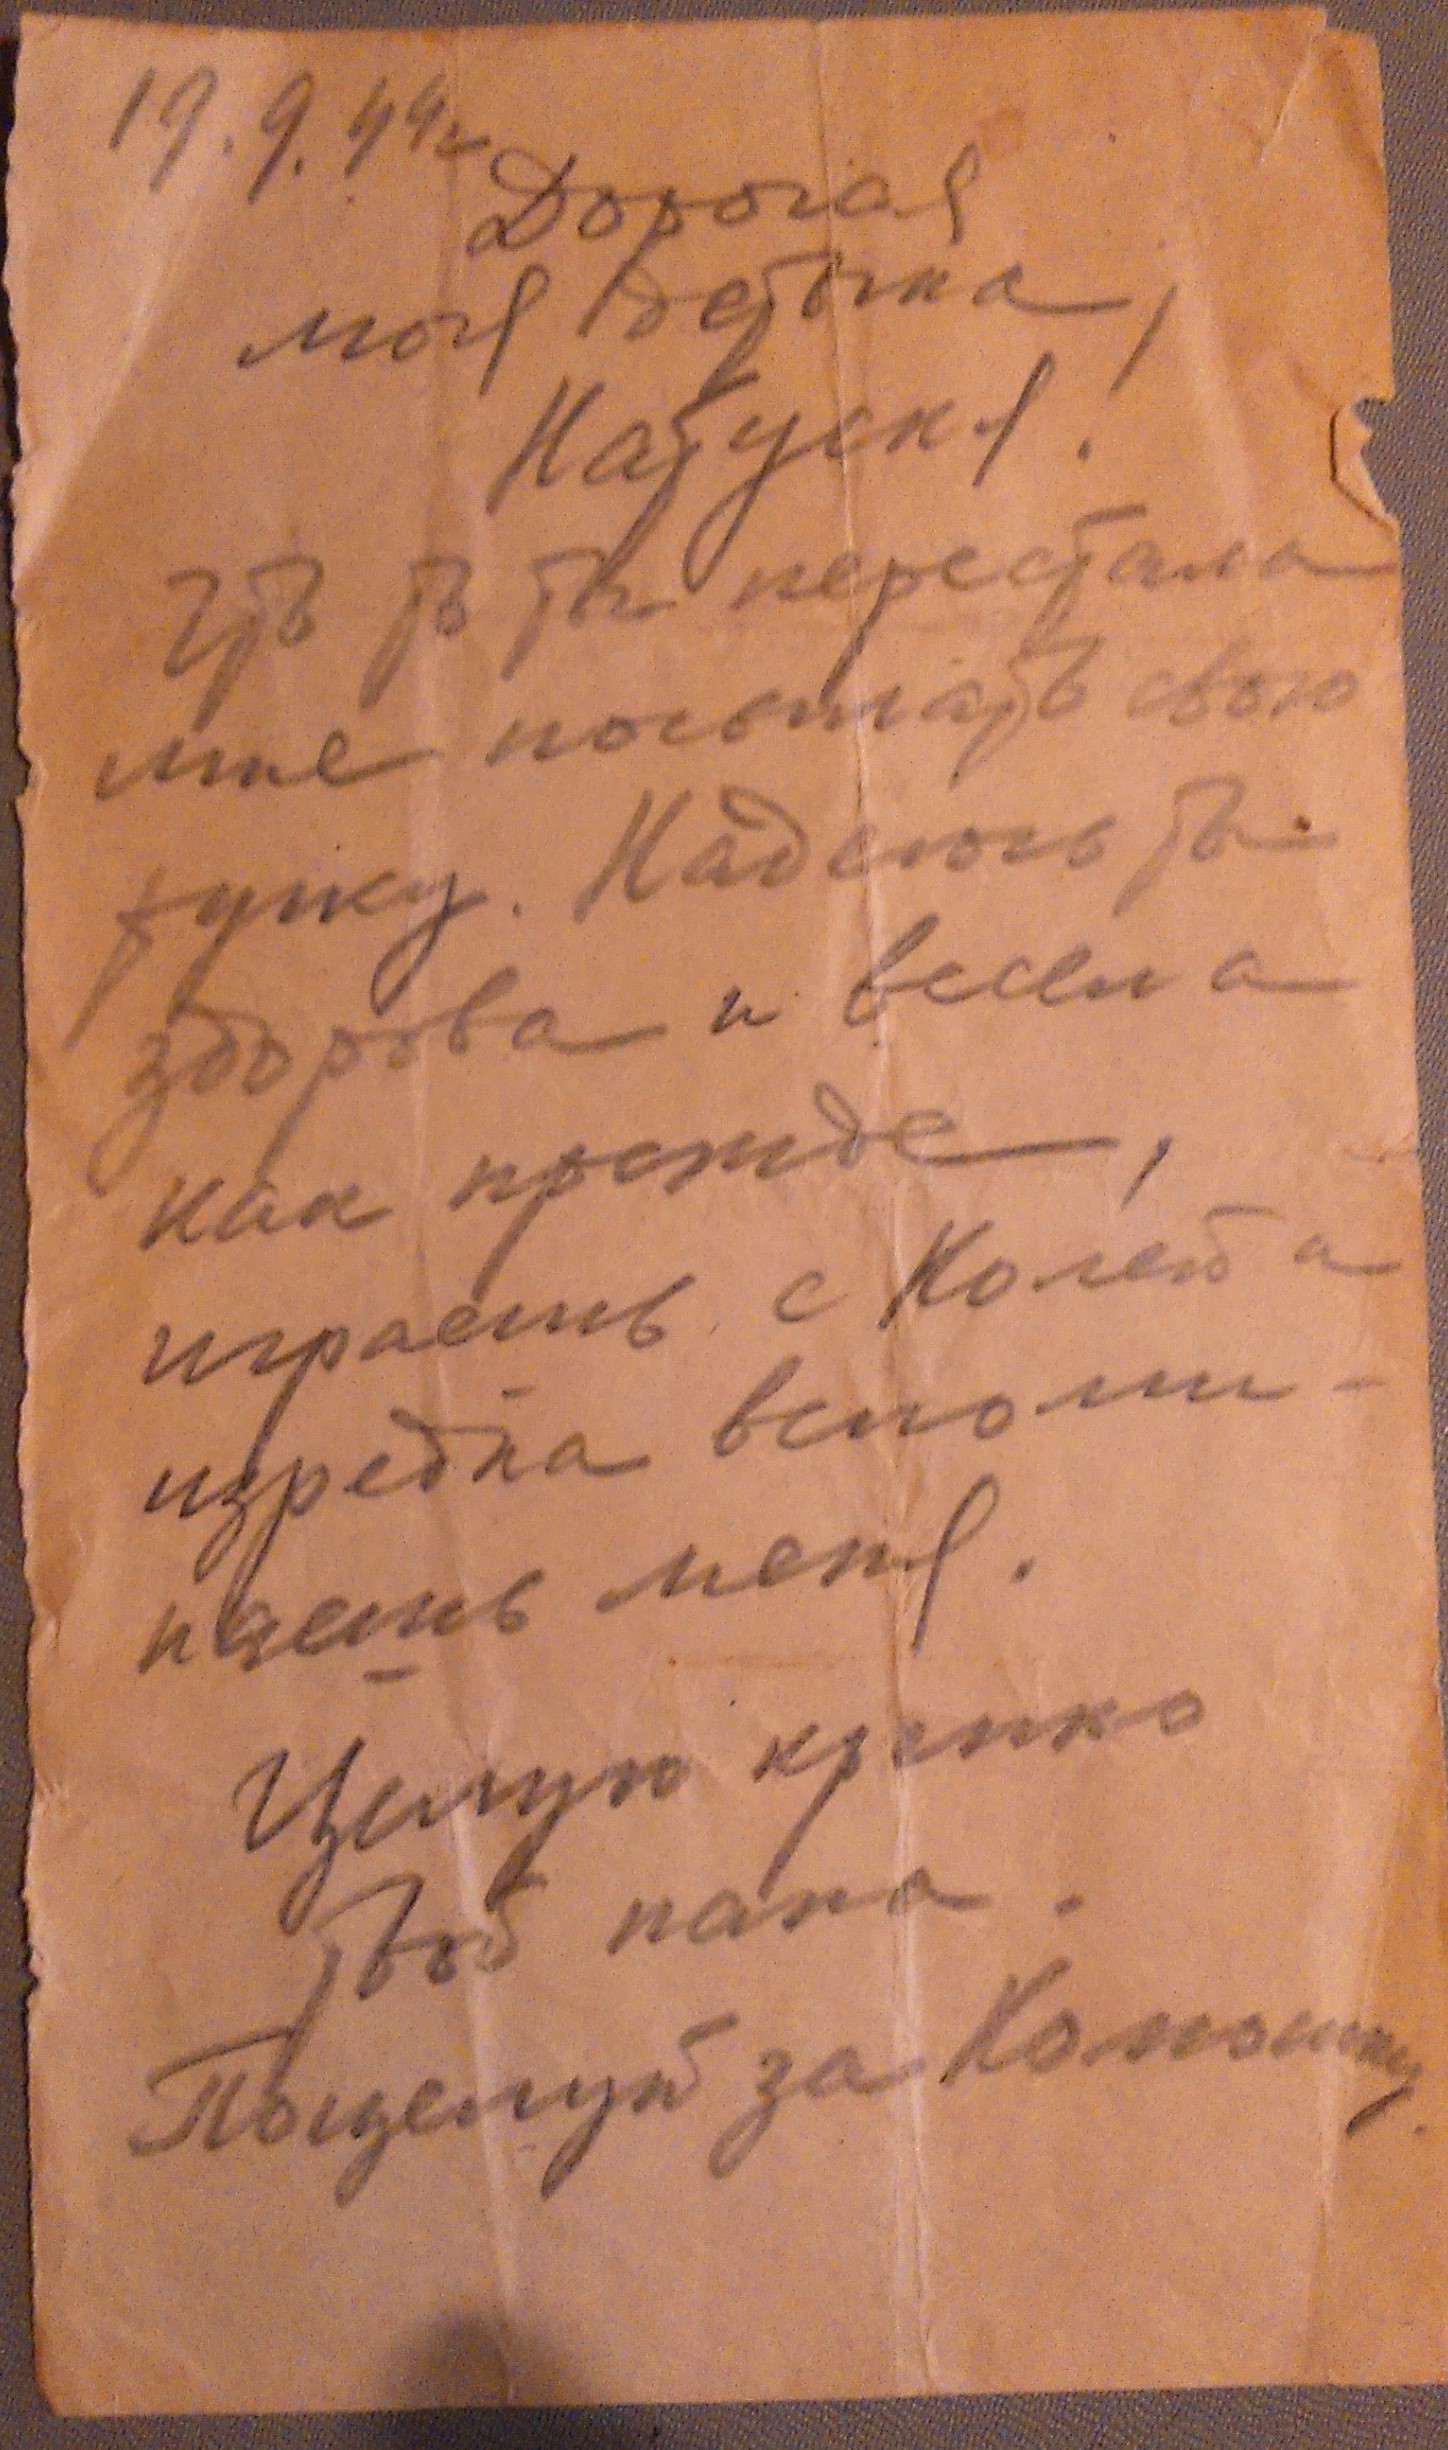 19.9.44г
Дорогая
моя детка,
Натуся.
Что то ты перестала
мне посылать свою
ручку. Надеюсь ты
здорова и весела
как прежде,
играешь с Колей и
изредка вспоми-
наешь меня.
Целую крепко
Твой папа.
Поцелуй за Колюшку.